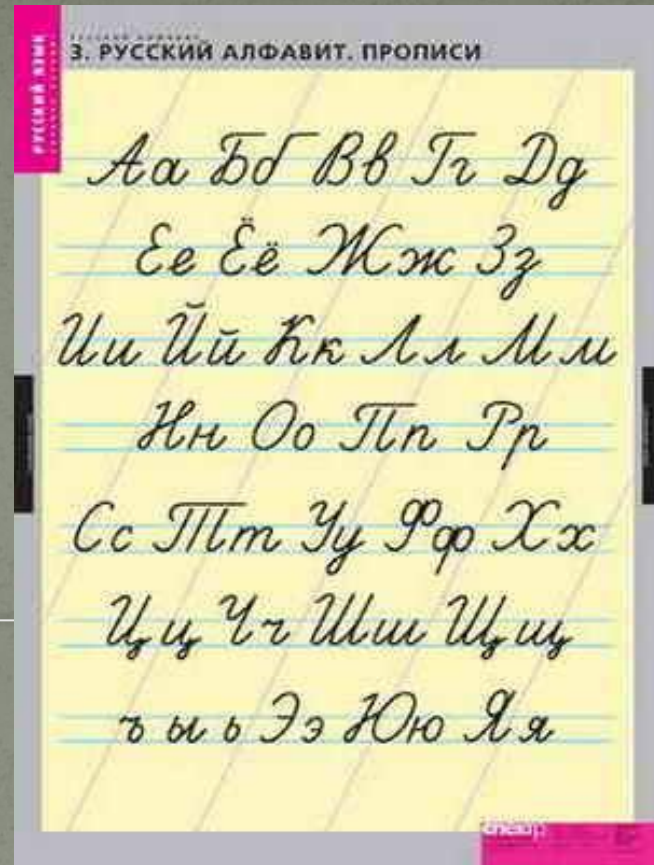 РУССКИЙ ЯЗЫК
3. РУССКИЙ АЛФАВИТ. ПРОПИСИ
Аа Бб Вв Гг Дд
Ее Ёё Жж Зз
Ии Йй Кк Лл Мм
Нн Оо Пп Рр
Сс Тт Уу Фф Хх
Цц Чч Шш Щщ
ъ ы ь Ээ Юю Яя
спектр